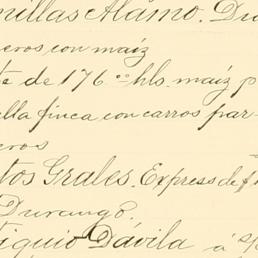 millas Alamo. Du
neros con maíz
te de 176 °° hls. maíz p
ella finca con carros par-
eros
tos Grales. Express de f
Durango.
tiquio Dávila á s/